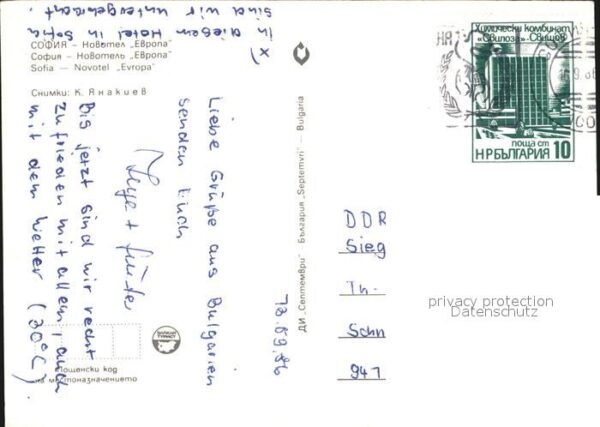 x)
in diesem Hotel in Sofia
sind wir
untergebracht.
СОФИЯ – Новотел „Европа"
София – Новотель „Европа"
Sofia – Novotel „Evropa"
Снимки: К. Янакиев
13.09.86
Liebe Grüße aus Bulgarien
senden Euch
Inge + Günter
Bis jetzt sind wir recht
zufrieden mit allem, auch
mit dem Wetter (30°C).
Пощенски код
на местоназначението
БАЛКАН
ТУРИСТ
ДИ „Септември" България „Septemvri" – Bulgaria
Химически комбинат
„Свилоза"–Свищов
поща ст
НРБЪЛГАРИЯ 10
DDR
Sieg
Th-
Schn
941
privacy protection
Datenschutz